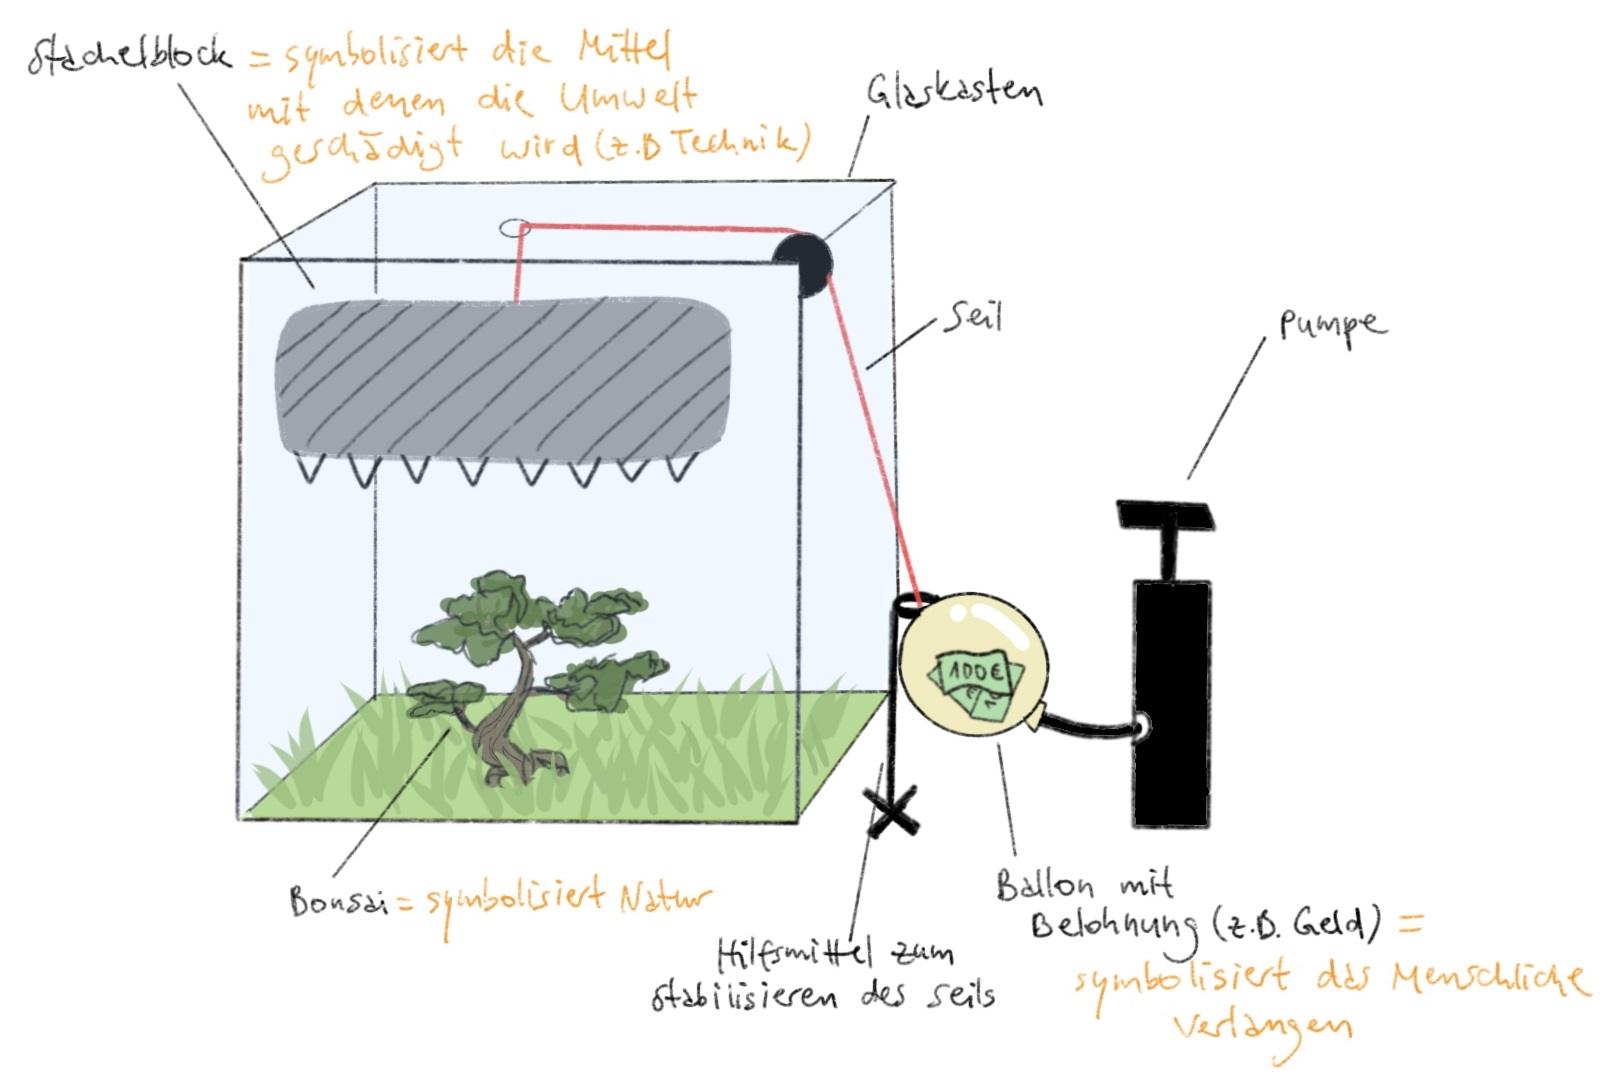 Stachelblock = symbolisiert die Mittel
mit denen die Umwelt
geschädigt wird (z.B Technik)
Glaskasten
Seil
Pumpe
100€
Bonsai = symbolisiert Natur
Hilfsmittel zum
stabilisieren des seils
Ballon mit
Belohnung (z.B. Geld) =
symbolisiert das Menschliche
Verlangen